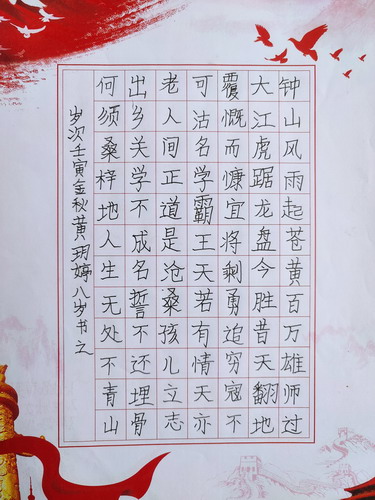 钟山风雨起苍黄百万雄师过
大江虎踞龙盘今胜昔天翻地
覆慨而慷宜将剩勇追穷寇不
可沽名学霸王天若有情天亦
老人间正道是沧桑孩儿立志
出乡关学不成名誓不还埋骨
何须桑梓地人生无处不青山
岁次壬寅金秋黄玥婷八岁书之